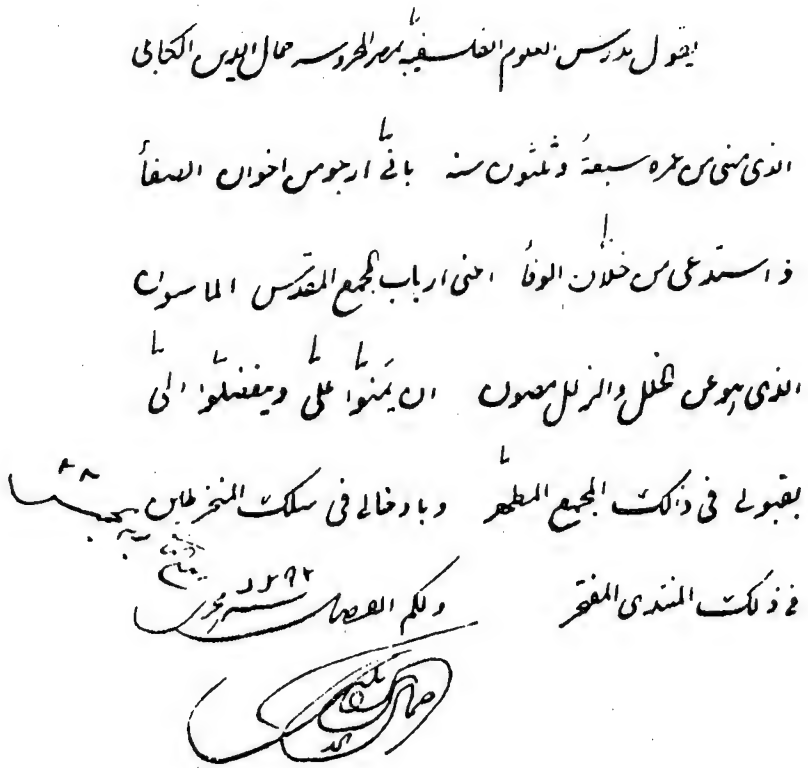 يقول مدرس العلوم الفلسفية بمصر المحروسة جمال الدين الكابلى
الذى مضى من عمره سبعة وثلثون سنة بانى ارجو من اخوان الصفا
و استدعى من خلان الوفا اعنى ارباب المجمع المقدس الماسون
الذى هو عن الخلل والزلل مصون ان يمنوا على ويتفضلوا الى
بقبولى فى ذلك المجمع المطهر وبادخالى فى سلك المنخرطين
فى ذلك المنتدى المفتخر ولكم الفضل
١٢٩٢
جمال الدين